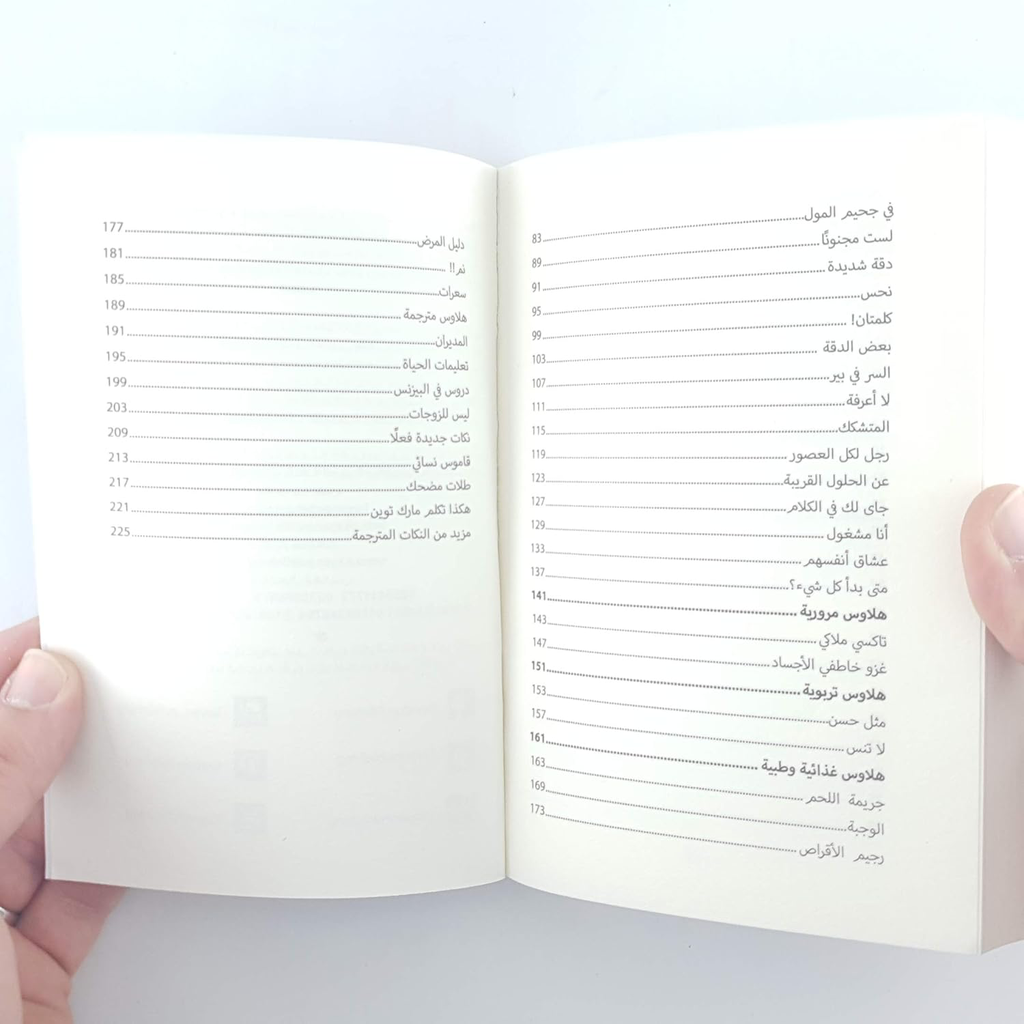 في جحيم المول 83
لست مجنونًا 89
دقة شديدة 91
نحس 95
كلمتان! 99
بعض الدقة 103
السر في بير 107
لا أعرفة 111
المتشكك 115
رجل لكل العصور 119
عن الحلول القريبة 123
جاى لك في الكلام 127
أنا مشغول 129
عشاق أنفسهم 133
متى بدأ كل شيء؟ 137
هلاوس مرورية 141
تاكسي ملاكي 143
غزو خاطفي الأجساد 147
هلاوس تربوية 151
مثل حسن 153
لا تنس 157
هلاوس غذائية وطبية 161
جريمة اللحم 163
الوجبة 169
رجيم الأقراص 173
دليل المرض 177
نم!! 181
سعرات 185
هلاوس مترجمة 189
المديران 191
تعليمات الحياة 195
دروس في البيزنس 199
ليس للزوجات 203
نكات جديدة فعلًا 209
قاموس نسائي 213
طلات مضحك 217
هكذا تكلم مارك توين 221
مزيد من النكات المترجمة 225